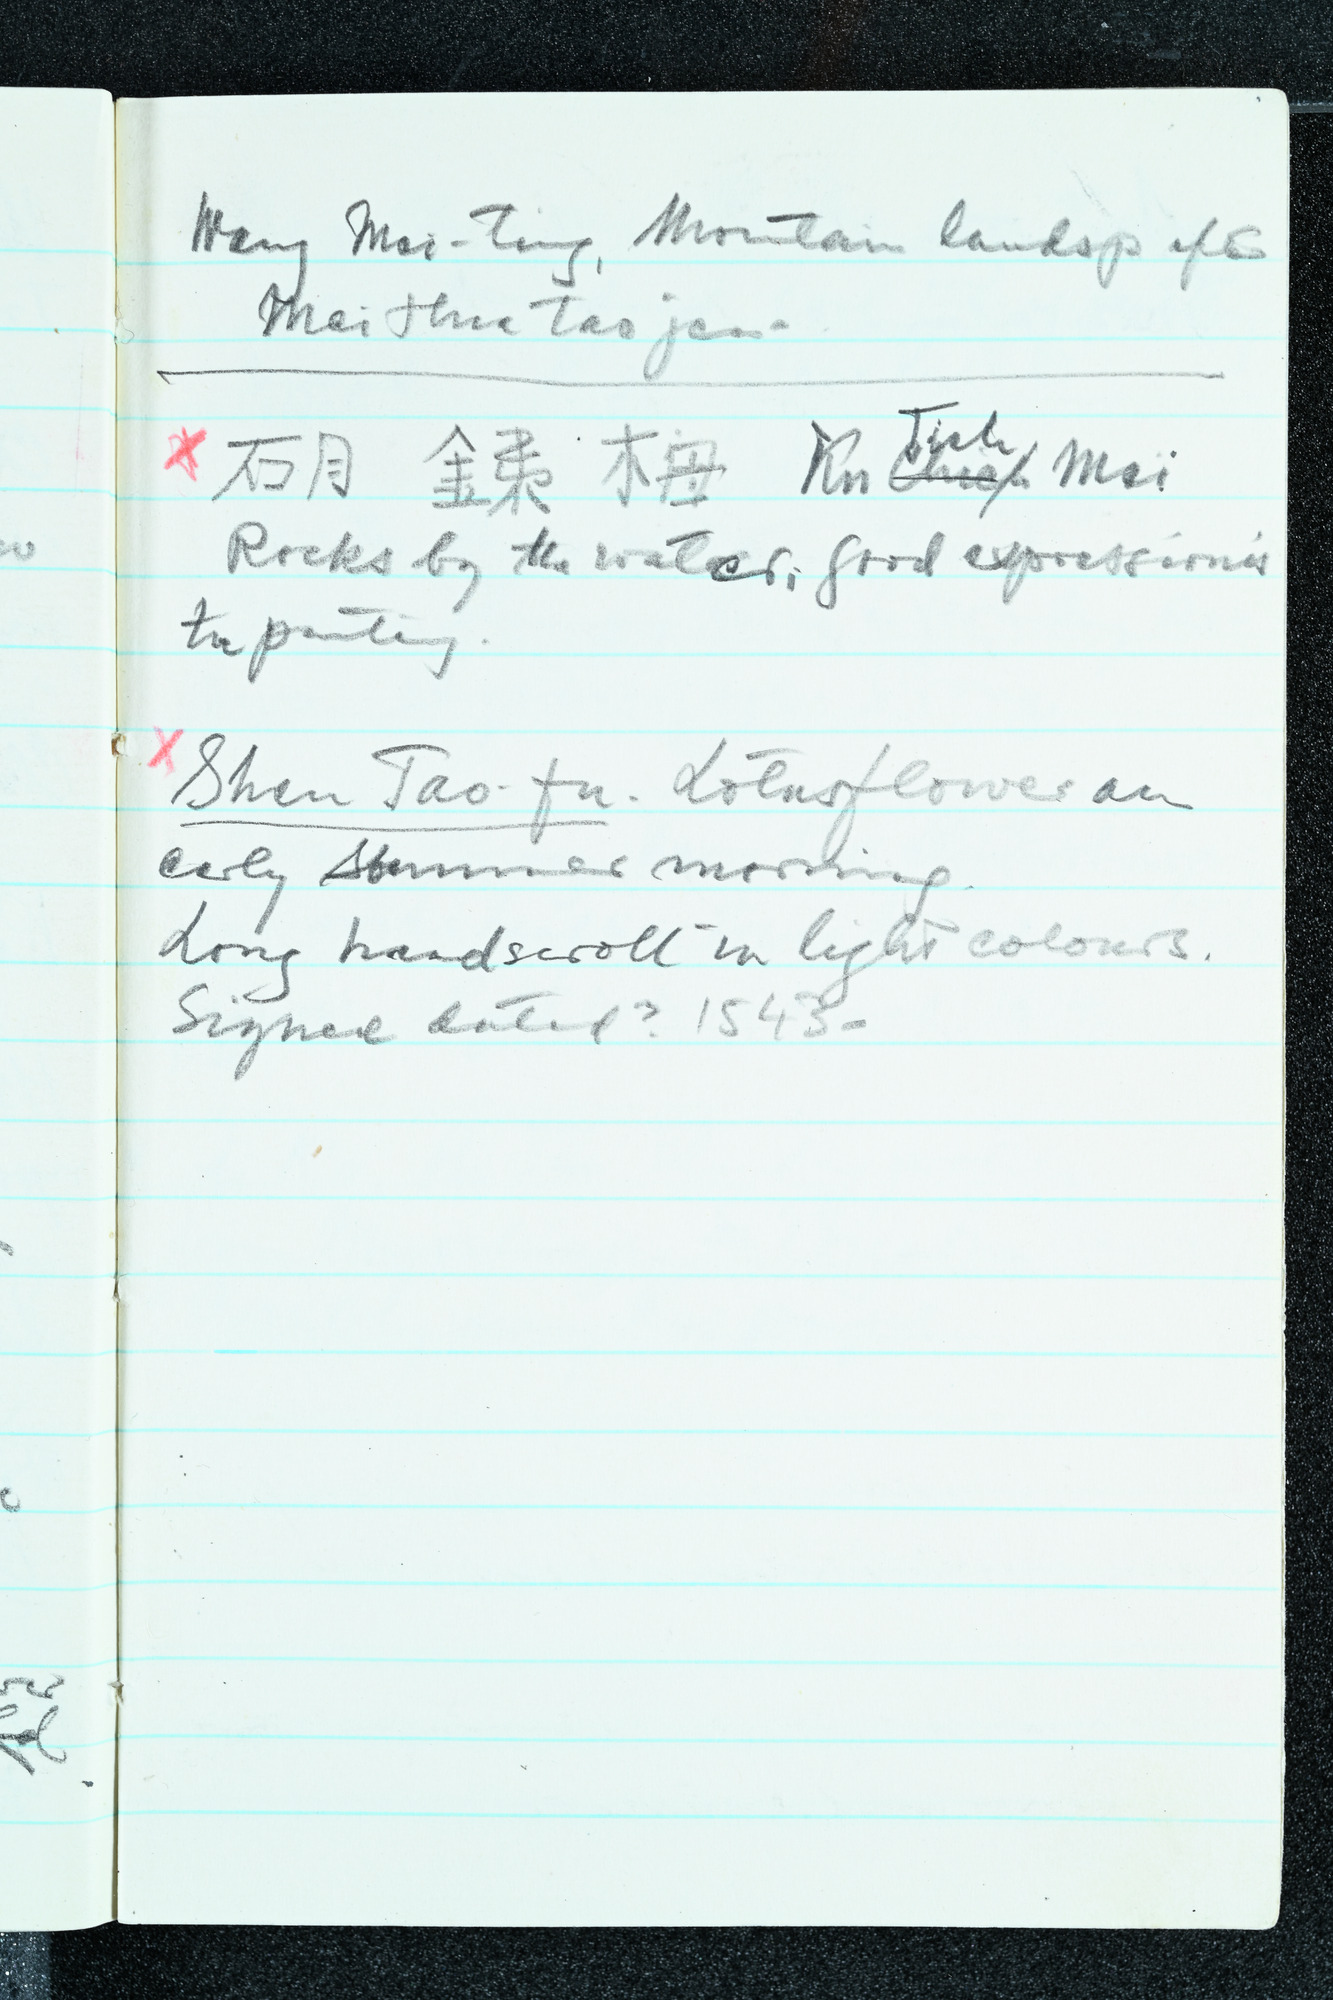 Wang Mei-ting, Mountain landsp after
Mei Hua Tao jen -
x 胡 銕 梅 Ku Tieh Mei
Rocks by the water; good expressionis
tic painting.
x Shen Tao-fu. Lotusflower an
early summer morning.
Long handscroll in light colours.
Signed dated? 1543 -